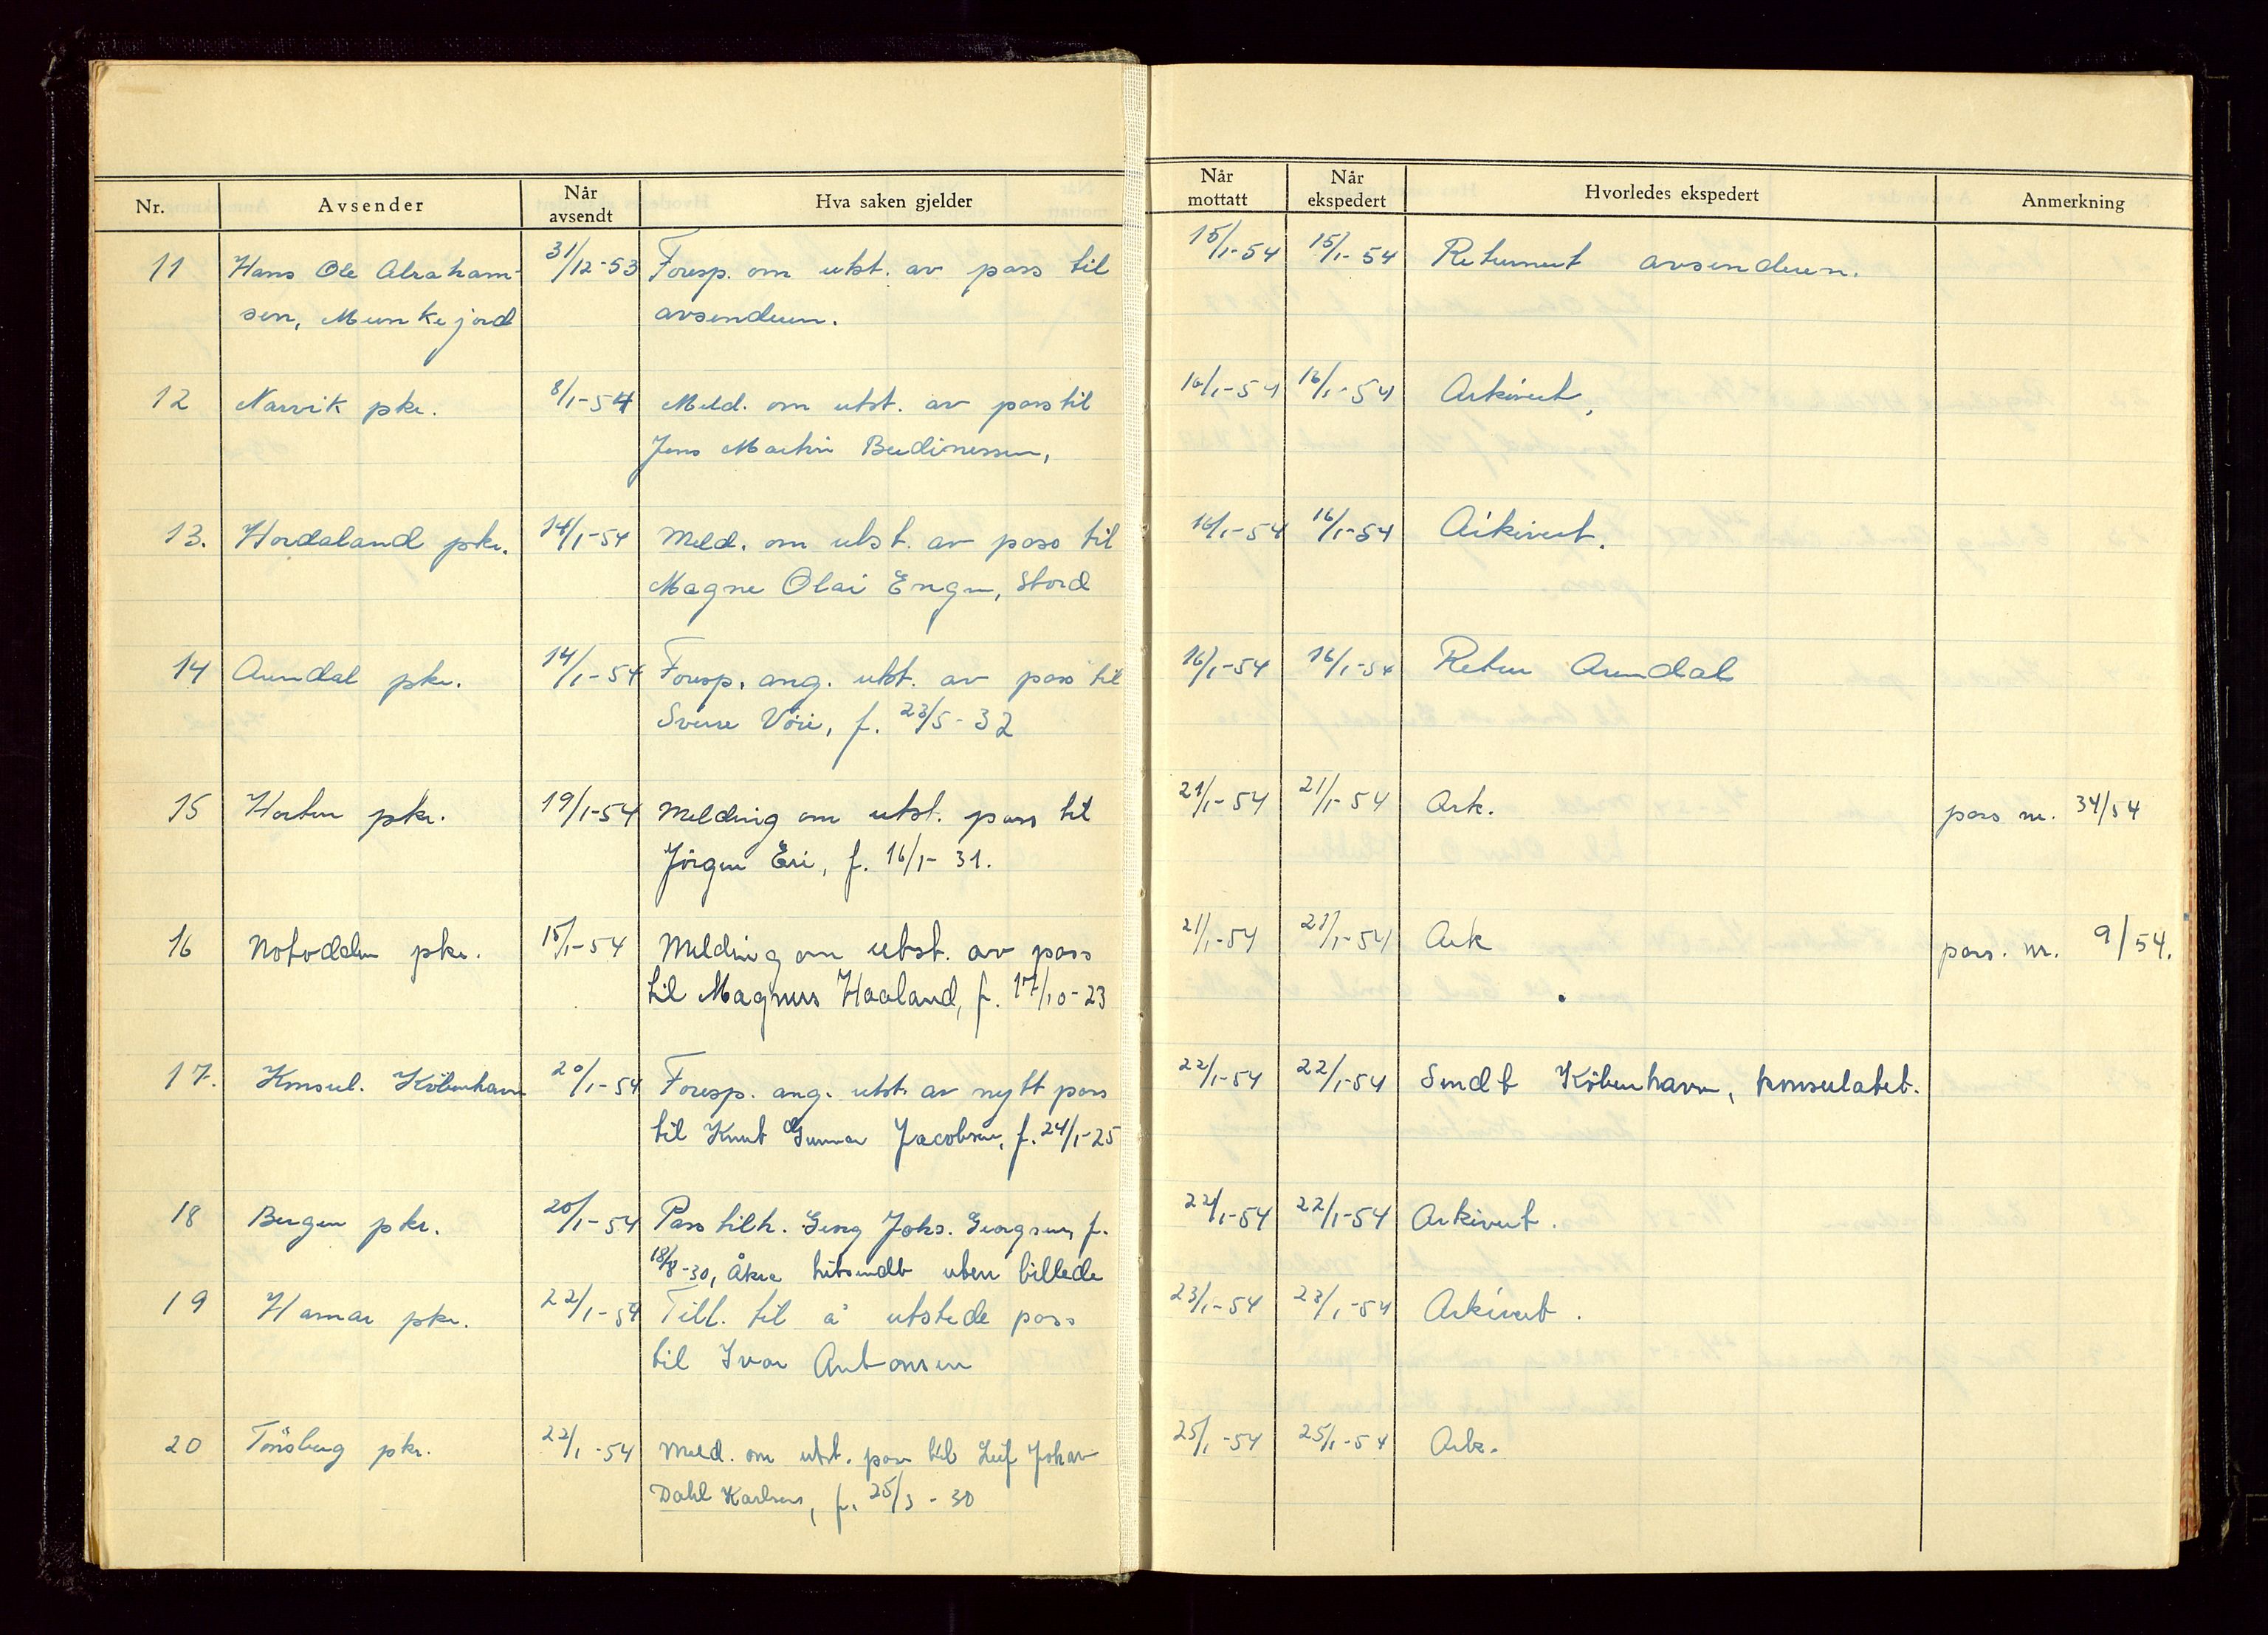 Nr. Avsender Når avsendt Hva saken gjelder Når mottatt Når ekspedert Hvorledes ekspedert Anmerkning
11 Hans Ole Abraham- 31/12-53 Foresp. om utst. av pass til 15/1-54 15/1-54 Returnert avsenderen.
sen, Munkejord avsenderen.
12 Narvik pkr. 8/1-54 Meld. om utst. av pass til 16/1-54 16/1-54 Arkivert.
Jens Martin Budinessen,
13. Hordaland pkr. 14/1-54 Meld. om utst. av pass til 16/1-54 16/1-54 Arkivert.
Magne Olai Engen, Stord
14 Arendal pkr. 14/1-54 Foresp. ang. utst. av pass til 16/1-54 16/1-54 Retur Arendal
Sverre Vöie, f. 23/5-32
15 Horten pkr. 19/1-54 Melding om utst. pass til 21/1-54 21/1-54 Ark. pass nr. 34/54
Jörgen Eri, f. 16/1-31.
16 Notodden pkr. 15/1-54 Melding om utst. av pass 21/1-54 21/1-54 Ark pass. nr. 9/54.
til Magnus Haaland, f. 17/10-23
17. Konsul. Köbenhavn 20/1-54 Foresp. ang. utst. av nytt pass 22/1-54 22/1-54 Sendt Köbenhavn, konsulatet.
til Knut Gunnar Jacobsen, f. 24/1-25
18 Bergen pkr. 20/1-54 Pass tilh. Georg Johs. Georgsen, f. 22/1-54 22/1-54 Arkivert.
18/8-30, Åkra hitsendt uten billede
19 Hamar pkr. 22/1-54 Till. til å utstede pass 23/1-54 23/1-54 Arkivert.
til Ivar Antonsen
20 Tönsberg pkr. 22/1-54 Meld. om utst. pass til Leif Johan 25/1-54 25/1-54 Ark.
Dahl Karlsen, f. 25/3-30